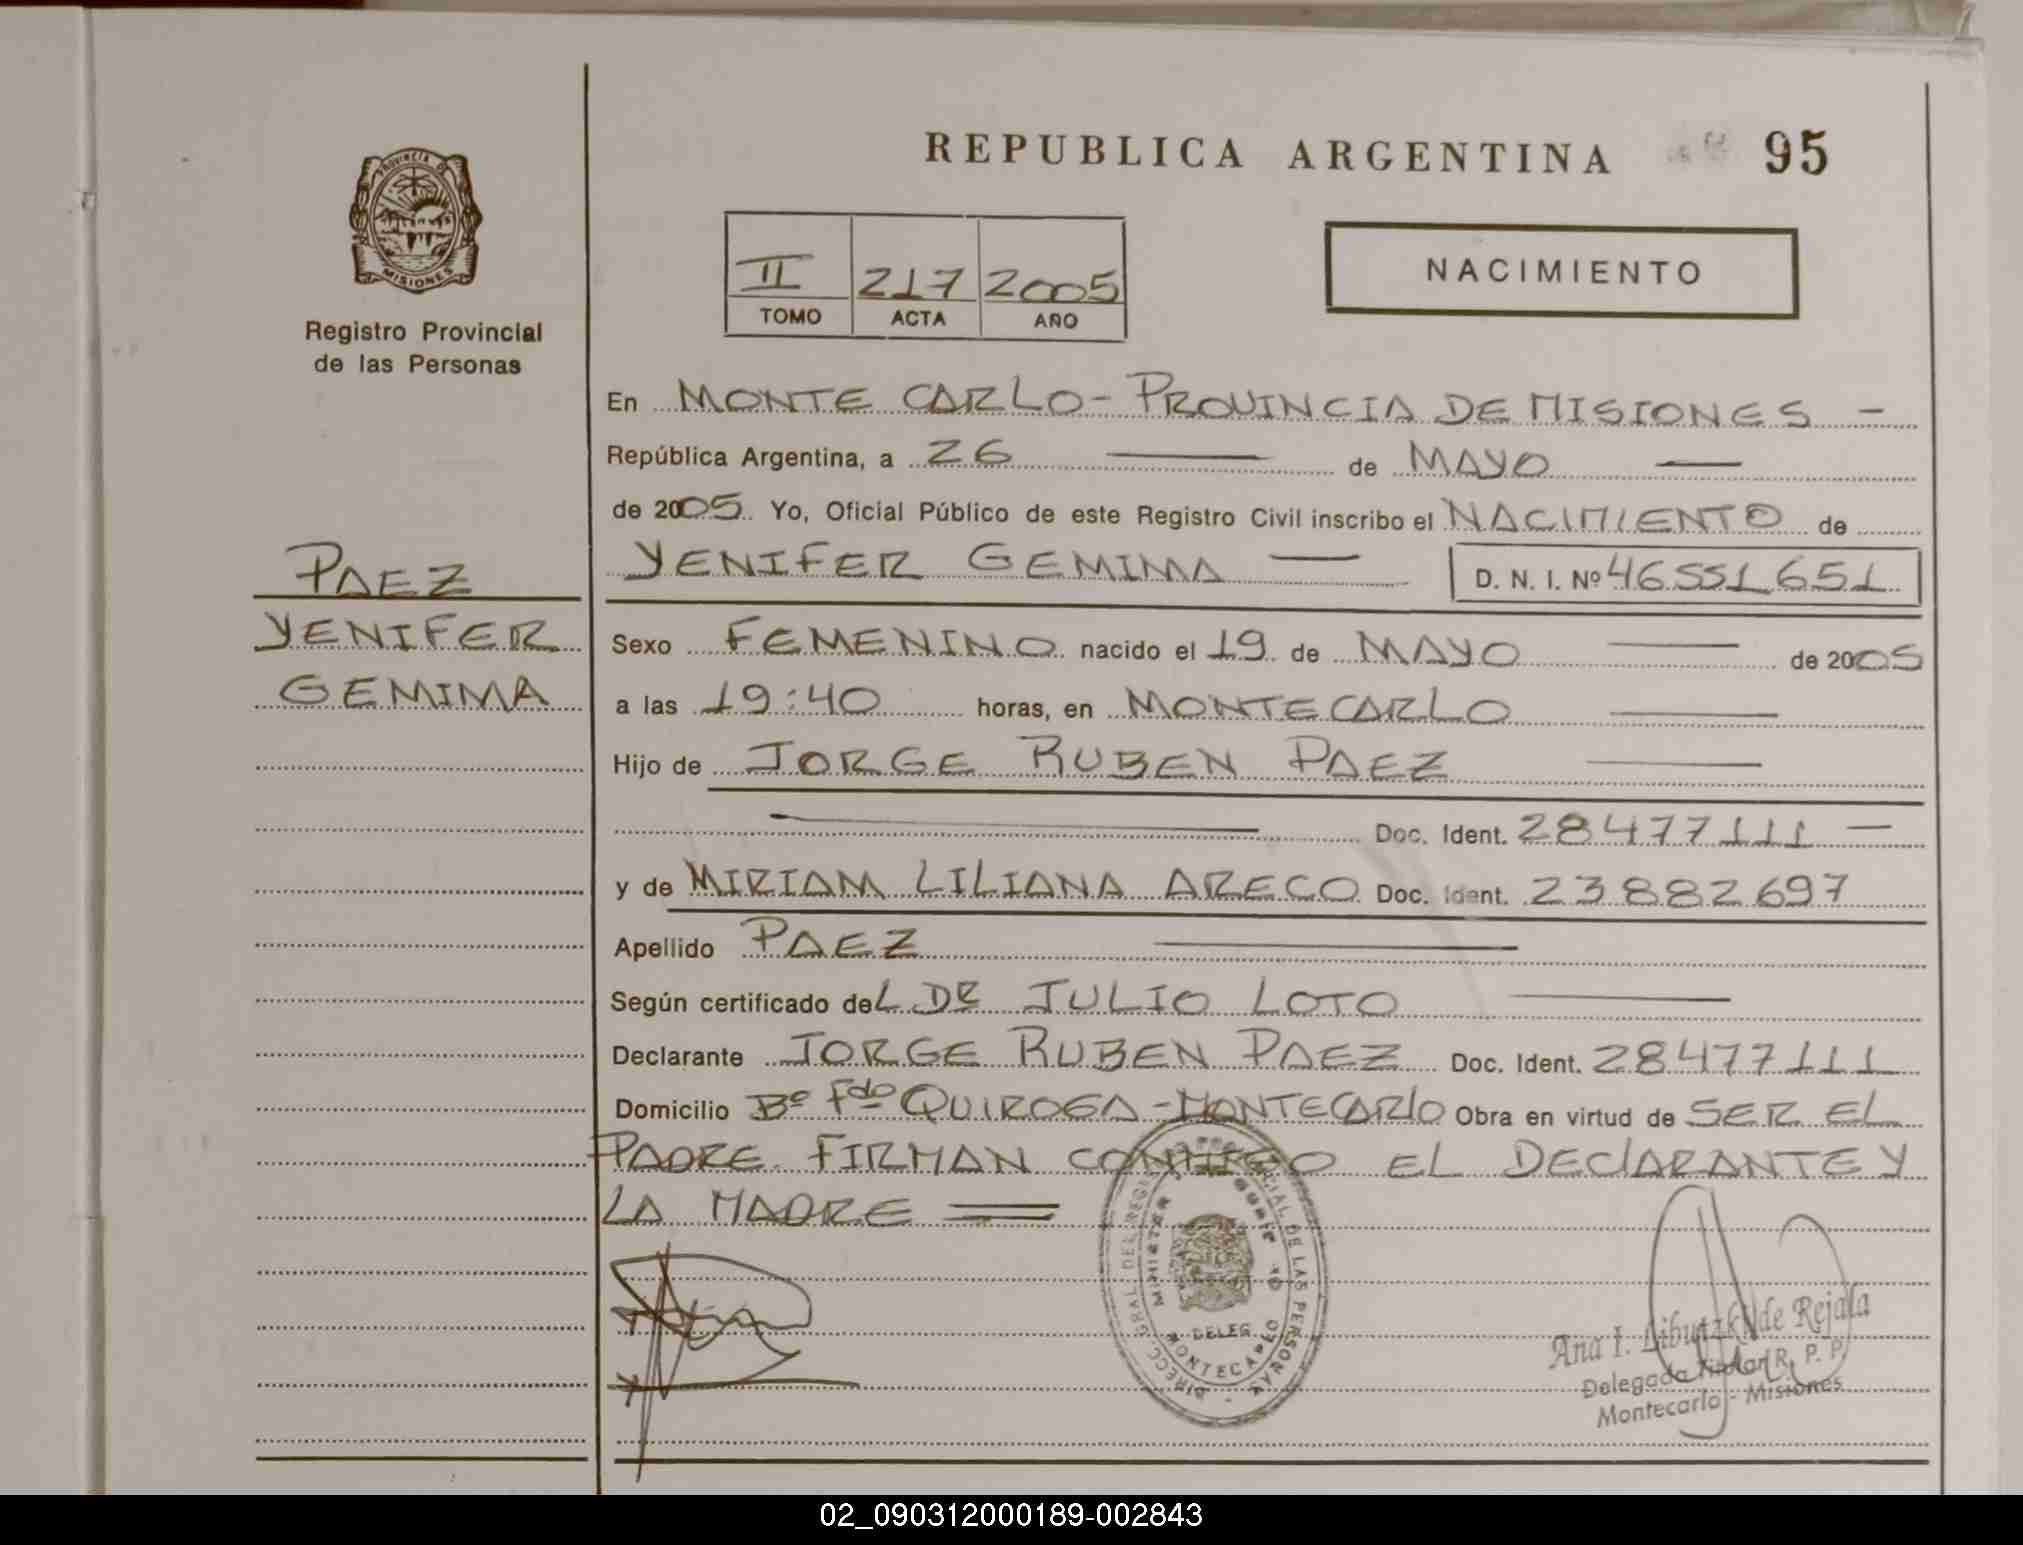 REPUBLICA ARGENTINA 95
PROVINCIA DE
MISIONES
Registro Provincial
de las Personas
II 217 2005
TOMO ACTA AÑO
NACIMIENTO
En MONTE CARLO - PROVINCIA DE MISIONES -
República Argentina, a 26 — de MAYO —
de 2005. Yo, Oficial Público de este Registro Civil inscribo el NACIMIENTO de
YENIFER GEMIMA — D. N. I. Nº 46551651
PAEZ
YENIFER
GEMIMA
Sexo FEMENINO nacido el 19 de MAYO — de 2005
a las 19:40 horas, en MONTECARLO —
Hijo de JORGE RUBEN PAEZ —
— Doc. Ident. 28477111 —
y de MIRIAM LILIANA ARECO Doc. Ident. 23882697
Apellido PAEZ —
Según certificado deL DR JULIO LOTO —
Declarante JORGE RUBEN PAEZ Doc. Ident. 28477111
Domicilio Bº Fdo QUIROGA - MONTECARLO Obra en virtud de SER EL
PADRE. FIRMAN CONMIGO EL DECLARANTE Y
LA MADRE =
DIRECC. GRAL. DEL REGIS CIAL DE LAS PERSONAS
DELEG.
MONTECARLO
Ana I. Libutzki de Rejala
Delegada Titular R. P. P.
Montecarlo - Misiones
02_090312000189-002843